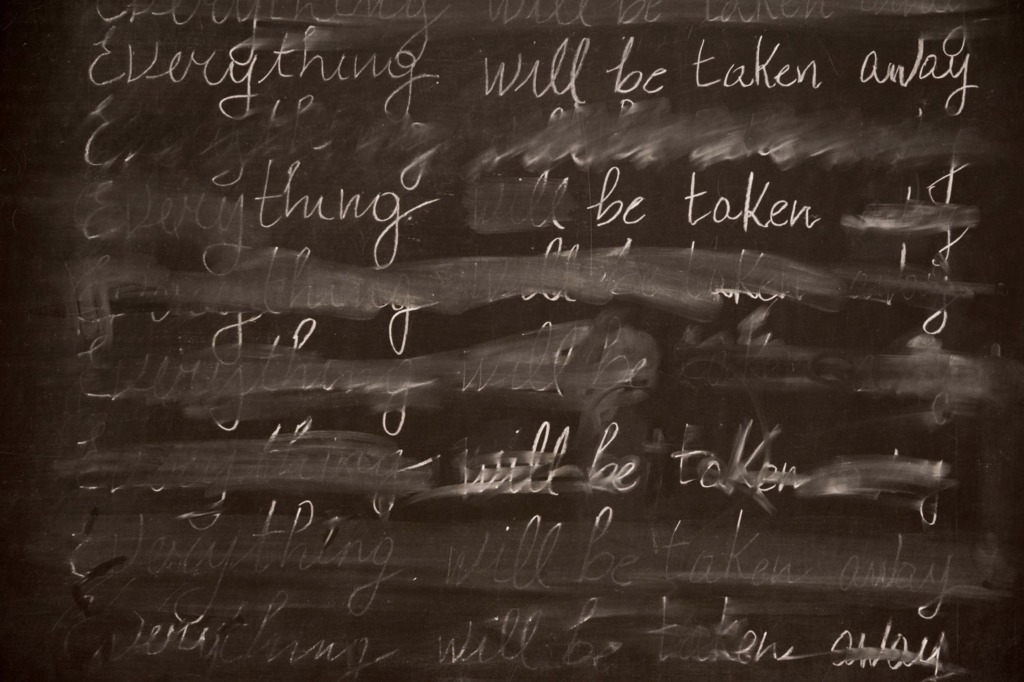 Everything will be taken away
Everything will be taken away
Everything will be taken
will be taken
Everything will be
Everything will be taken
Everything will be taken away
Everything will be taken away